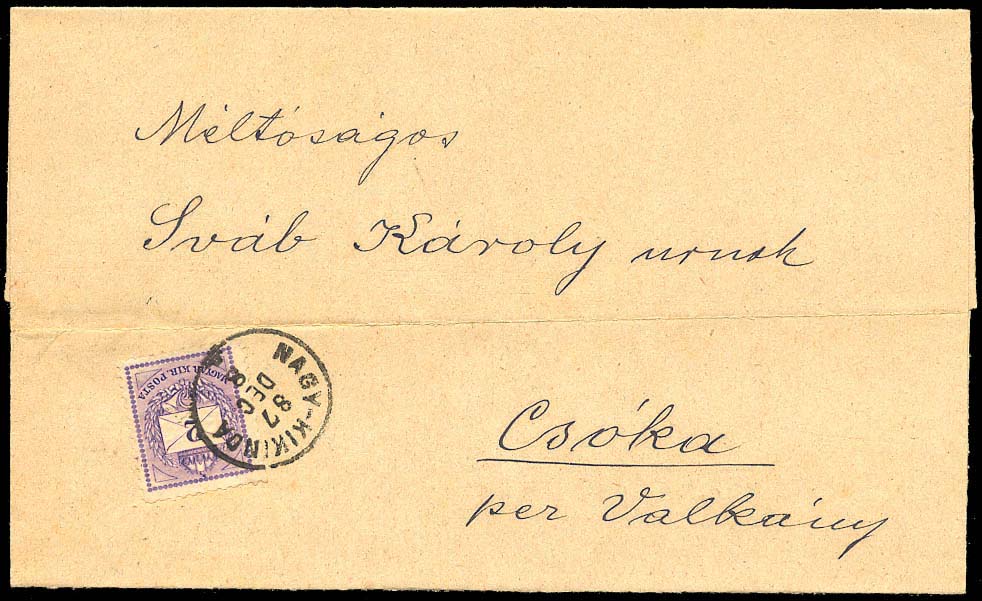 Méltóságos
Sváb Károly urnak
Csóka
per Valkány
NAGY-KIKINDA
87
DEC
8
MAGYAR KIR. POSTA
2